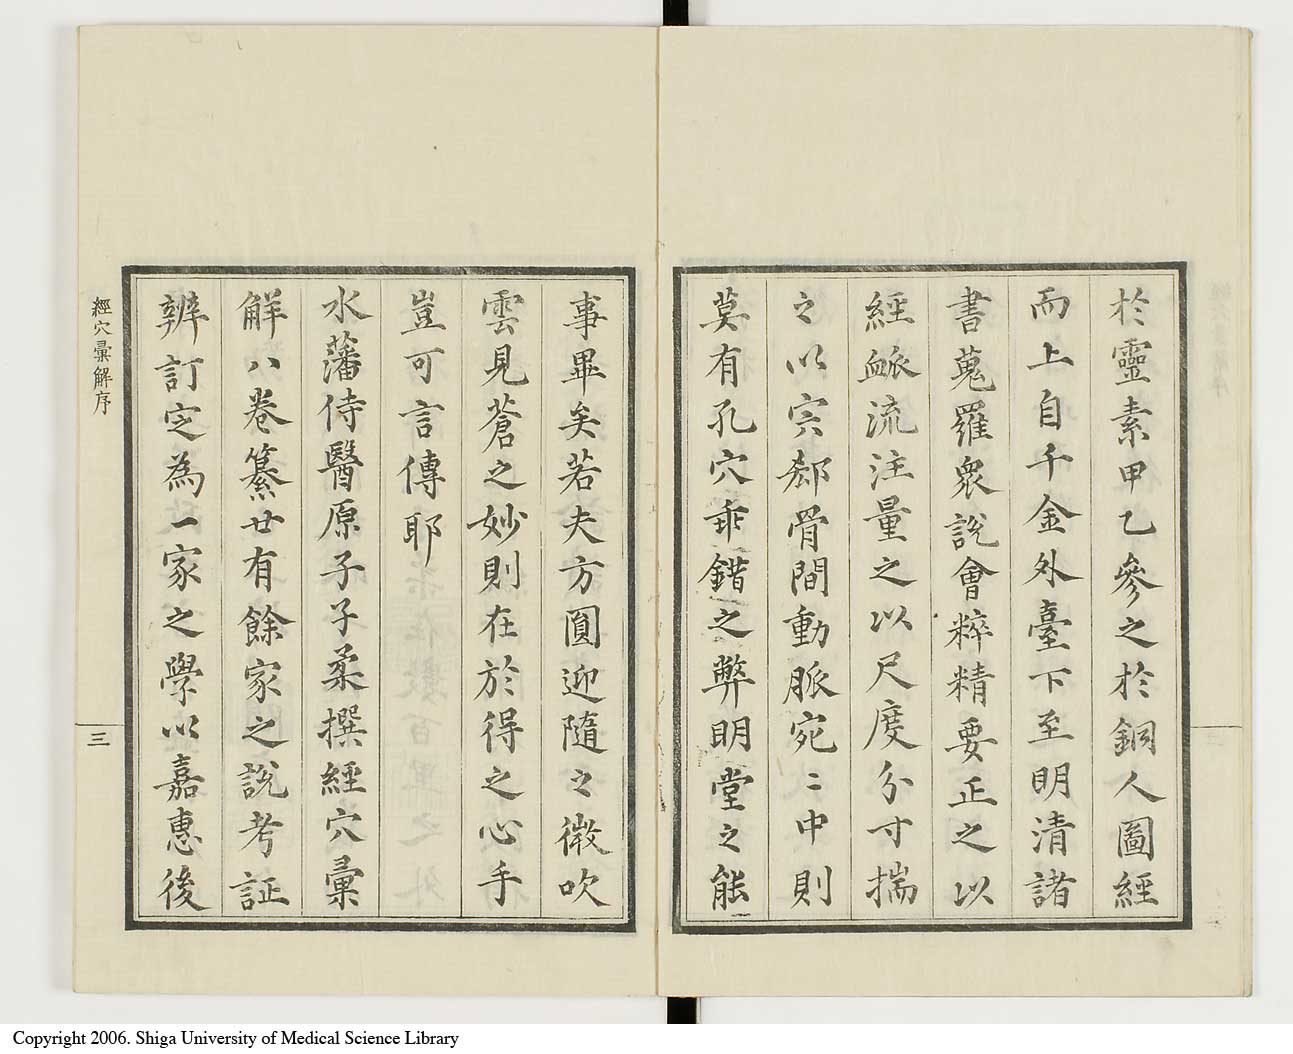 於靈素甲乙參之於銅人圖經
而上自千金外臺下至明清諸
書蒐羅衆說會粹精要正之以
經䘑流注量之以尺度分寸揣
之以宍郄骨間動脈宛〻中則
莫有孔穴乖錯之弊明堂之能
事畢矣若夫方圓迎隨之微吹
雲見蒼之妙則在於得之心手
豈可言傳耶
水藩侍醫原子子柔撰經穴彙
解八卷纂廿有餘家之說考証
辨訂定為一家之學以嘉惠後
經穴彙解序
三
Copyright 2006. Shiga University of Medical Science Library